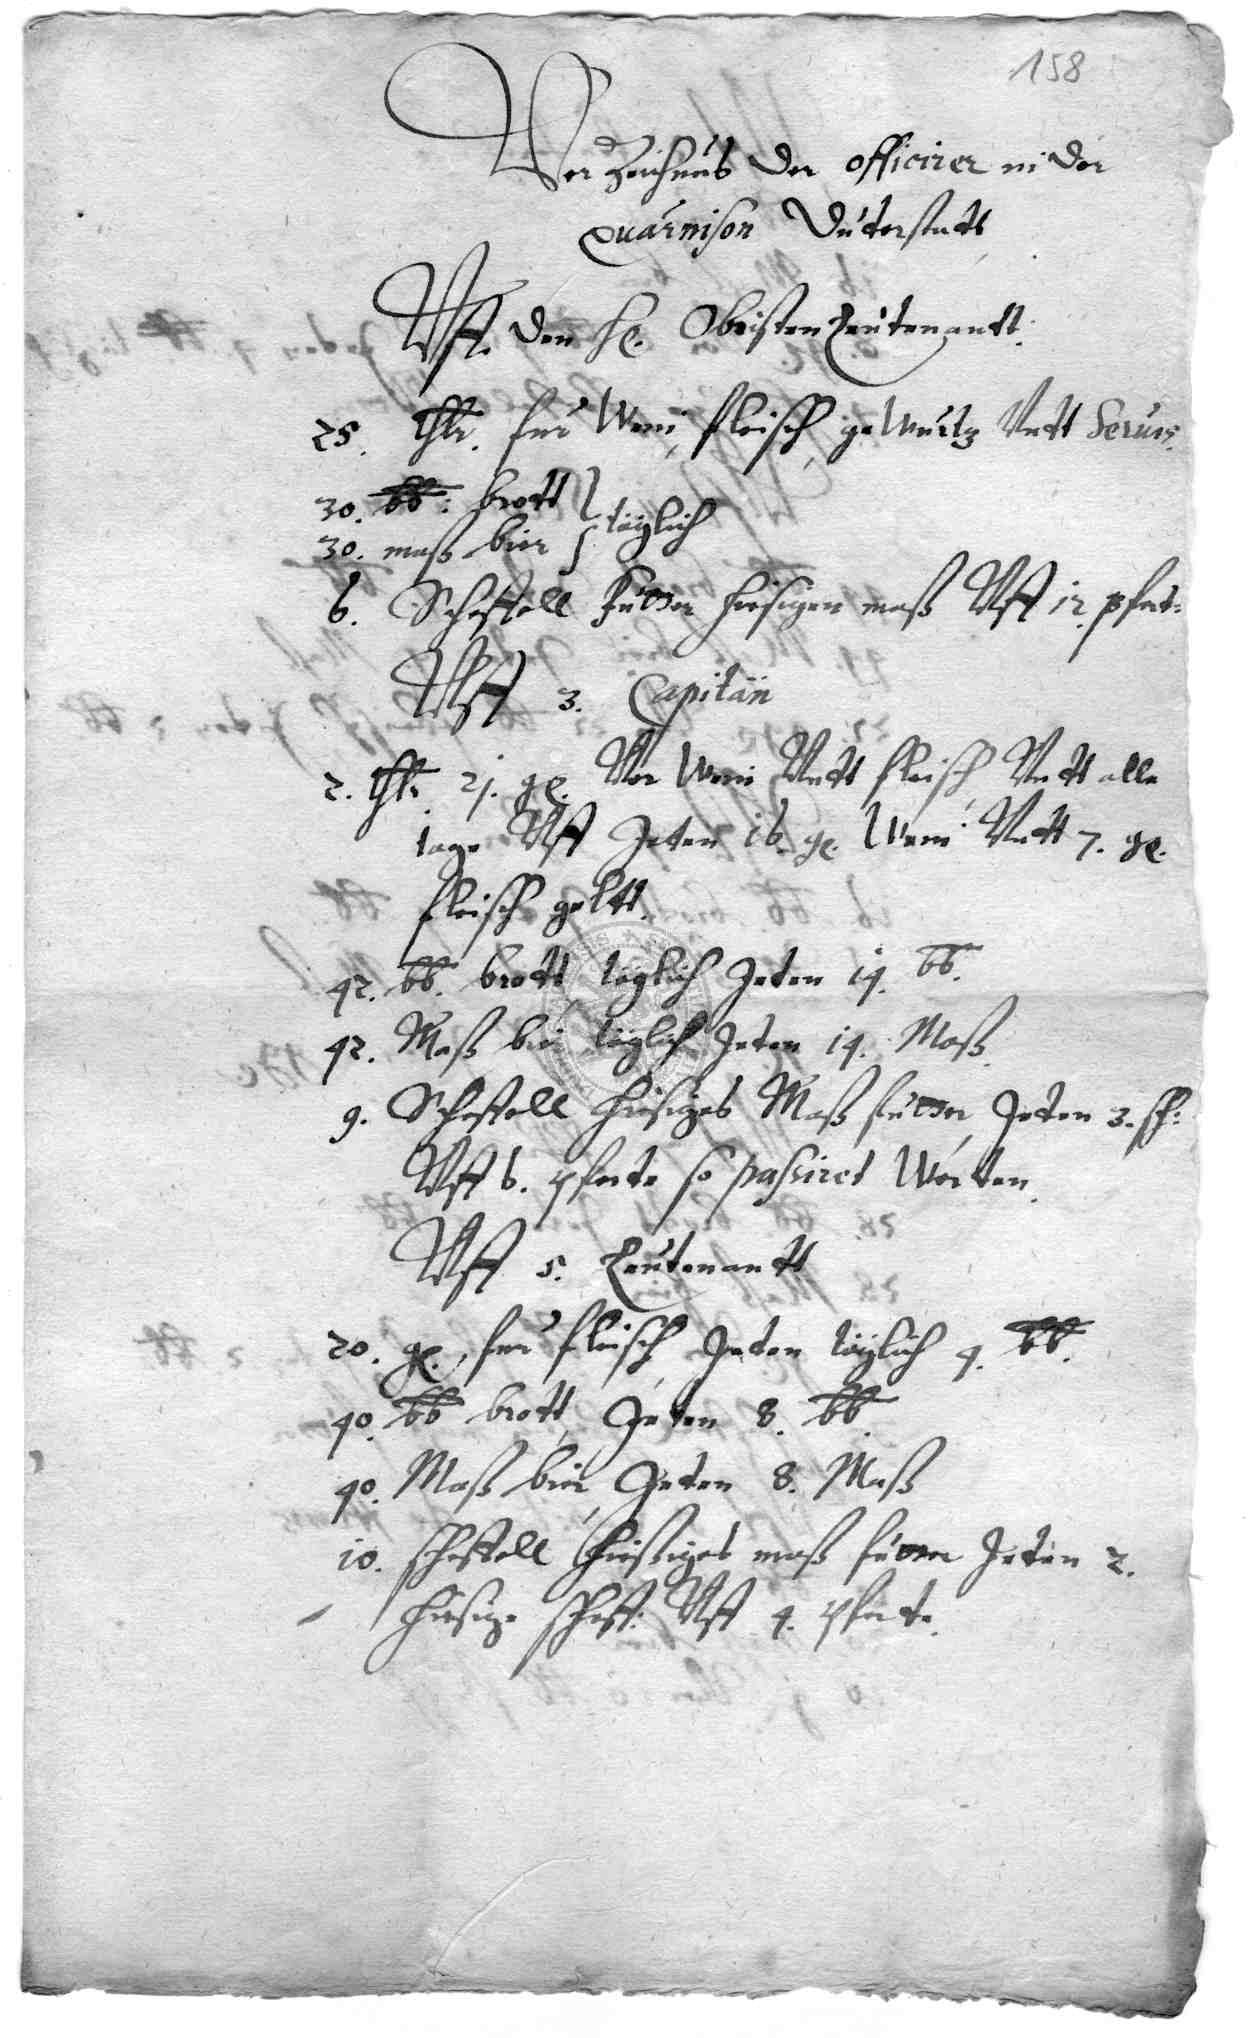 158
Verzeichnus der officirer in der
Quarnison Duterstatt
Vff den H. Obristen Leutenantt.
25. thlr. fur Wein, fleisch, gewurtz Vntt Seruis.
30. lb: brott } täglich
30. maß bier
6. Scheffell Futter hiesigen maß Vff 12. pfert:
Vff 3. Capitän
2. thlr. 21. gl. Vor Wein Vntt fleisch, Vntt alle
tage Vff Jeten 16. gl. Wein Vntt 7. gl.
fleisch geltt.
42. lb. brott täglich Jeten 14. lb.
42. Maß bir täglich Jeten 14. Maß.
9. Scheffell hiesiges Maß futter, Jeten 3. sch:
Vff 6. pferte so passiret Werten.
Vff 5. Leutenantt
20. gl. fur fleisch, Jeten täglich 4. lb.
40. lb brott, Jeten 8. lb.
40. Maß bier, Jeten 8. Maß
10. scheffell hiesiges maß futter Jeten 2.
hiesige scheff: Vff 4. pferte.